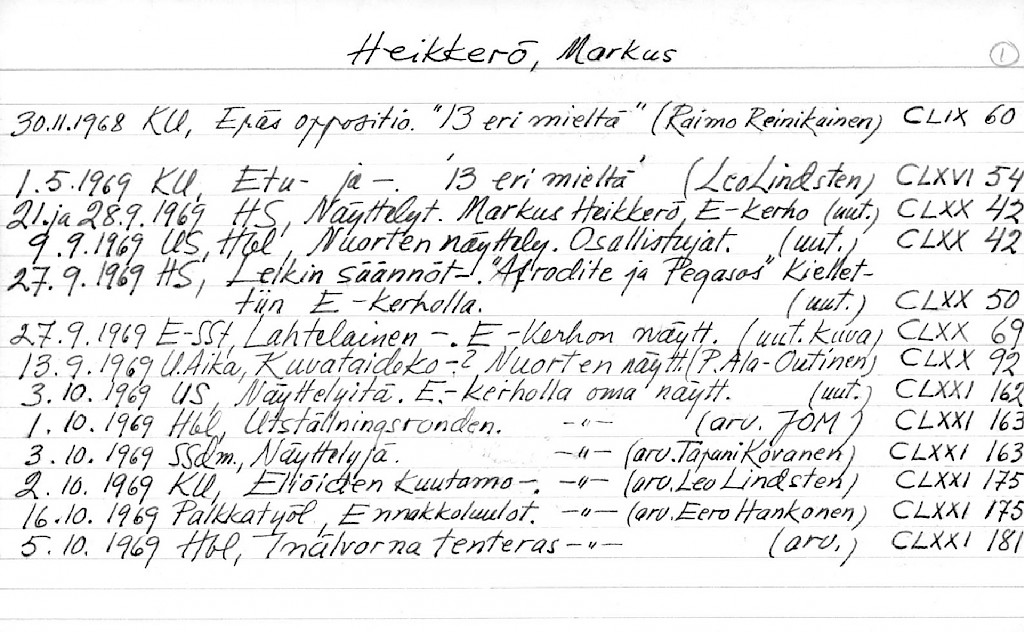 Heikkerö, Markus 1
30.11.1968 KU, Epäs oppositio. "13 eri mieltä" (Raimo Reinikainen) CLIX 60
1.5.1969 KU, Etu- ja -. '13 eri mieltä' (Leo Lindsten) CLXVI 54
21. ja 28.9.1969 HS, Näyttelyt. Markus Heikkerö, E-kerho (uut.) CLXX 42
9.9.1969 US, Hbl, Nuorten näyttely. Osallistujat. (uut.) CLXX 42
27.9.1969 HS, Leikin säännöt-. "Afrodite ja Pegasos" kiellet-
tiin E-kerholla. (uut.) CLXX 50
27.9.1969 E-SSt, Lahtelainen -. E-kerhon näytt. (uut. kuva) CLXX 69
13.9.1969 U.Aika, Kuvataideko-? Nuorten näytt. (P. Ala-Outinen) CLXX 92
3.10.1969 US, Näyttelyitä. E-kerholla oma näytt. (uut.) CLXXI 162
1.10.1969 Hbl, Utställningsronden. -"- (arv. JOM) CLXXI 163
3.10.1969 SSdm., Näyttelyjä. -"- (arv. Tapani Kovanen) CLXXI 163
2.10.1969 KU, Eliöiden kuutamo-. -"- (arv. Leo Lindsten) CLXXI 175
16.10.1969 Palkkatyöl, Ennakkoluulot. -"- (arv. Eero Hankonen) CLXXI 175
5.10.1969 Hbl, Inälvorna tenteras -"- (arv.) CLXXI 181